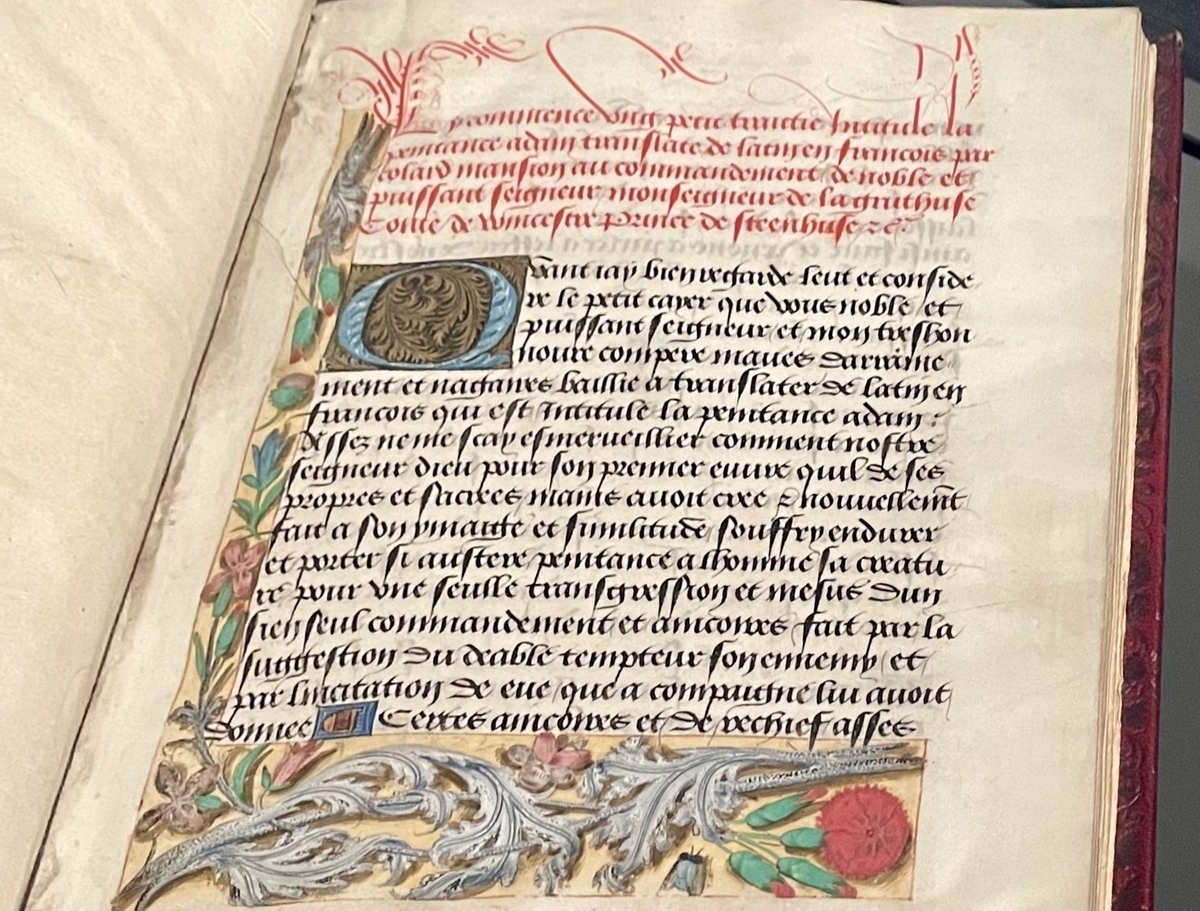 Cy commence vng petit traictie Intitule la
penitance adam translate de latin en francois par
colard mansion au commandement de noble et
puissant seigneur monseigneur de la gruthuse
Conte de wincestre Prince de steenhuse ⁊ cᵃ
Quant iay bien regarde leut et conside
re le petit cayer que vous noble et
puissant seigneur et mon treshon
noure compere maues darraine
ment et nagaires baillie a translater de latin en
francois qui est Intitule la penitance adam :
Assez ne me scay esmerveillier comment nostre
seigneur dieu pour son premier euure quil de ses
propres et sacrees mains auoit cree ⁊ nouuellemt
fait a son ymaige et similitude souffry endurer
et porter si austere penitance a lhomme sa creatu
re pour vne seulle transgression et mesus dun
sien seul commandement et aincoires fait par la
suggestion du deable tempteur son ennemy et
par lincitation de eue que a compaigne luy auoit
donnee Certes aincoires et de rechief asses